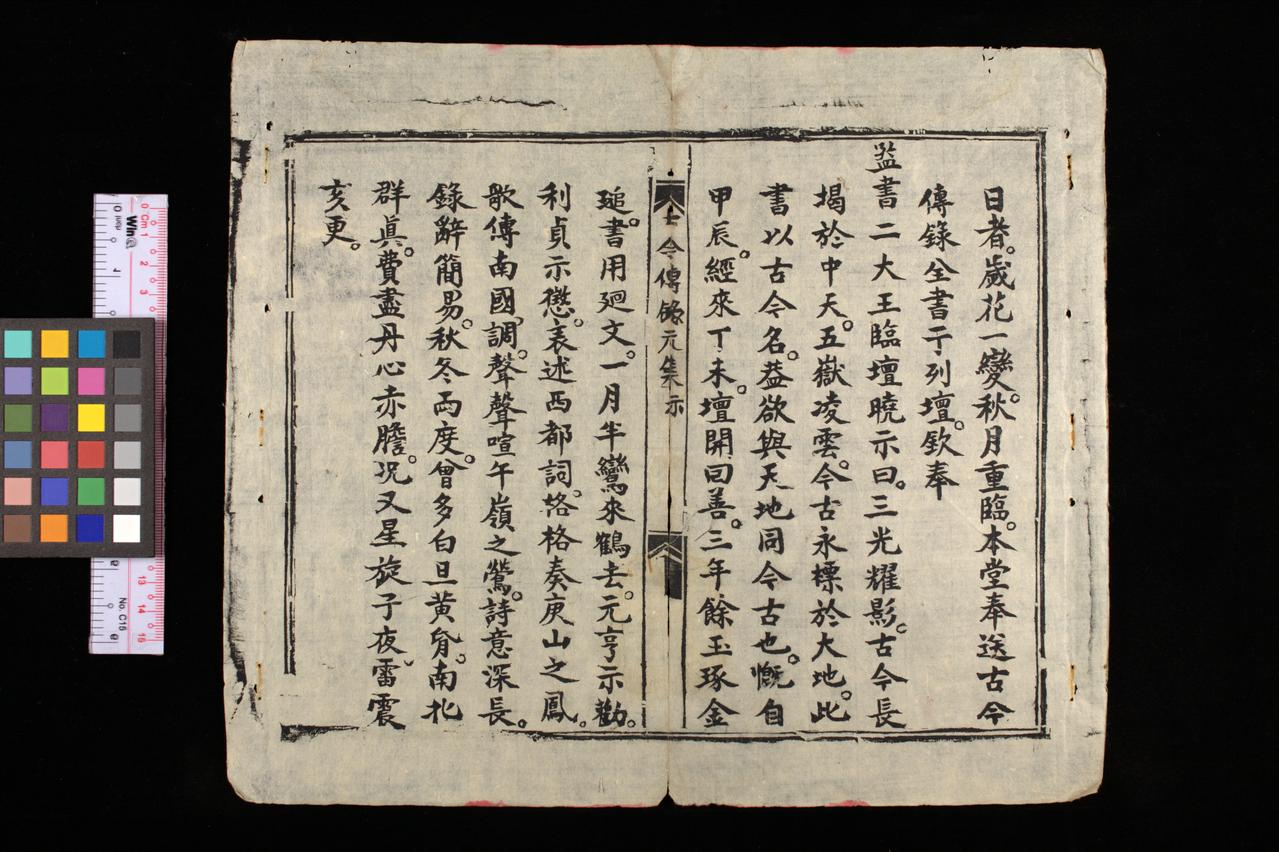 日者。歲花一變。秋月重臨。本堂奉送古今
傳錄全書于列壇。欽奉
監書二大王臨壇曉示曰。三光耀影。古今長
揭於中天。五嶽凌雲。今古永標於大地。此
書以古今名。葢欲與天地同今古也。慨自
甲辰。經來丁未。壇開曰善。三年餘玉琢金
古今傳錄元集示
鎚。書用廻文。一月半鸞來鶴去。元亨示勸。
利貞示懲。表述西都詞。格格奏庚山之鳳。
歌傳南國調。聲聲喧午嶺之鶯。詩意深長。
錄辭簡易。秋冬兩度。曾多白旦黃宵。南北
群眞。費盡丹心赤膽。况又星旋子夜。雷震
亥更。
Cm